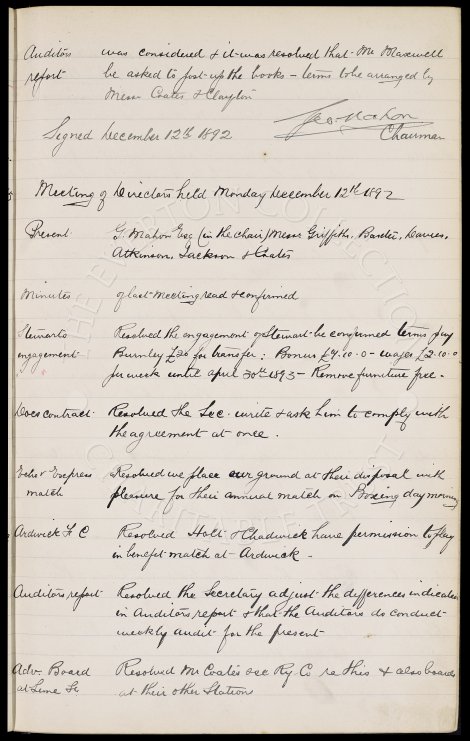 Auditors was considered & it was resolved that Mr Maxwell
report be asked to post up the books – terms to be arranged by
Messr Coates & Clayton
Signed December 12th 1892 Geo Mahon
Chairman
Meeting of Directors held Monday December 12th 1892
Present G. Mahon Esq (in the chair) Messr Griffiths, Baxter, Davies,
Atkinson, Jackson & Coates
Minutes of last meeting read & confirmed
Stewarts Resolved the engagement of Stewart be confirmed terms pay
engagement Burnley £20 for transfer: Bonus £7.10.0 – wages £2.10.0
per week until april 30th 1893 – Remove furniture free –
Does contract Resolved the Sec. write & ask him to comply with
the agreement at once.
Echo & Express Resolved we place our ground at their disposal with
match pleasure for their annual match on Boxing day morning
Ardwick F C Resolved Holt & Chadwick have permission to play
in benefit match at Ardwick –
Auditors report Resolved the Secretary adjust the differences indicated
in Auditors report & that the Auditors do conduct
weekly audit for the present
Adv. Board Resolved Mr Coates see Ry Co re this & also boards
at Lime St at their other Stations
THE EVERTON COLLECTION
CHARITABLE TRUST